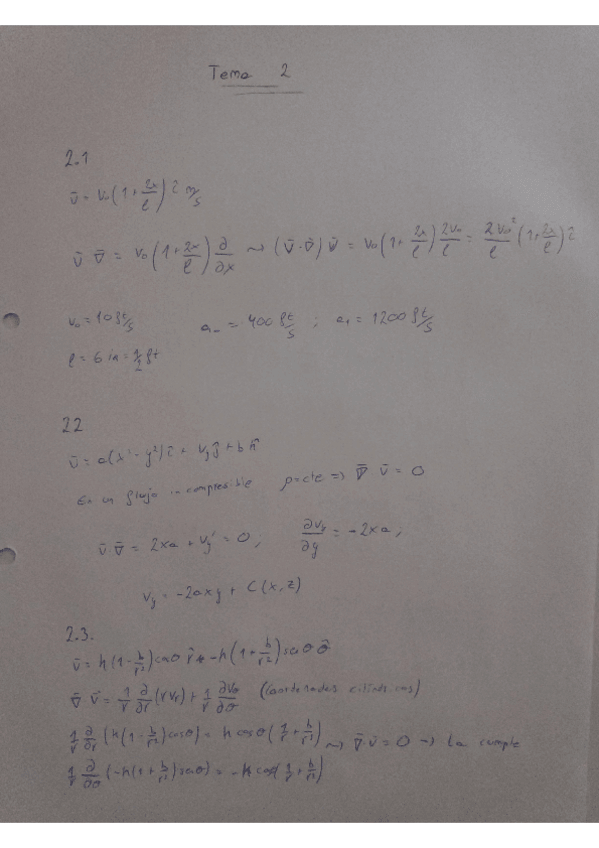 Tema 2
2.1
v̄ = v₀(1+2x/l) î m/s
v̄ ∇̄ = v₀(1+2x/l) ∂/∂x ⤳ (v̄·∇̄) v̄ = v₀(1+2x/l) 2v₀/l = 2v₀²/l (1+2x/l) î
v₀ = 10 ft/s a₀ = 400 ft/s ; a₁ = 1200 ft/s
l = 6 in = 1/2 ft
2.2
v̄ = a(x²-y²) î + vy ĵ + b k̂
En un flujo incompresible ρ=cte => ∇̄ v̄ = 0
v̄·∇̄ = 2xa + vy' = 0; ∂vy/∂y = -2xa,
vy = -2axy + C(x,z)
2.3.
v̄ = k(1-b/r²)cosθ r̂ + -k(1+b/r²)senθ θ̂
∇̄ v̄ = 1/r ∂/∂r (r vr) + 1/r ∂vθ/∂θ (Coordenadas cilíndricas)
1/r ∂/∂r (k(1-b/r²)cosθ) = k cosθ(1/r + b/r³)
⤳ ∇̄·v̄ = 0 → La cumple
1/r ∂/∂θ (-k(1+b/r²)senθ) = -k cosθ(1/r + b/r³)